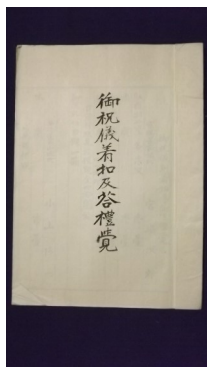 御祝儀着扣及答禮覺